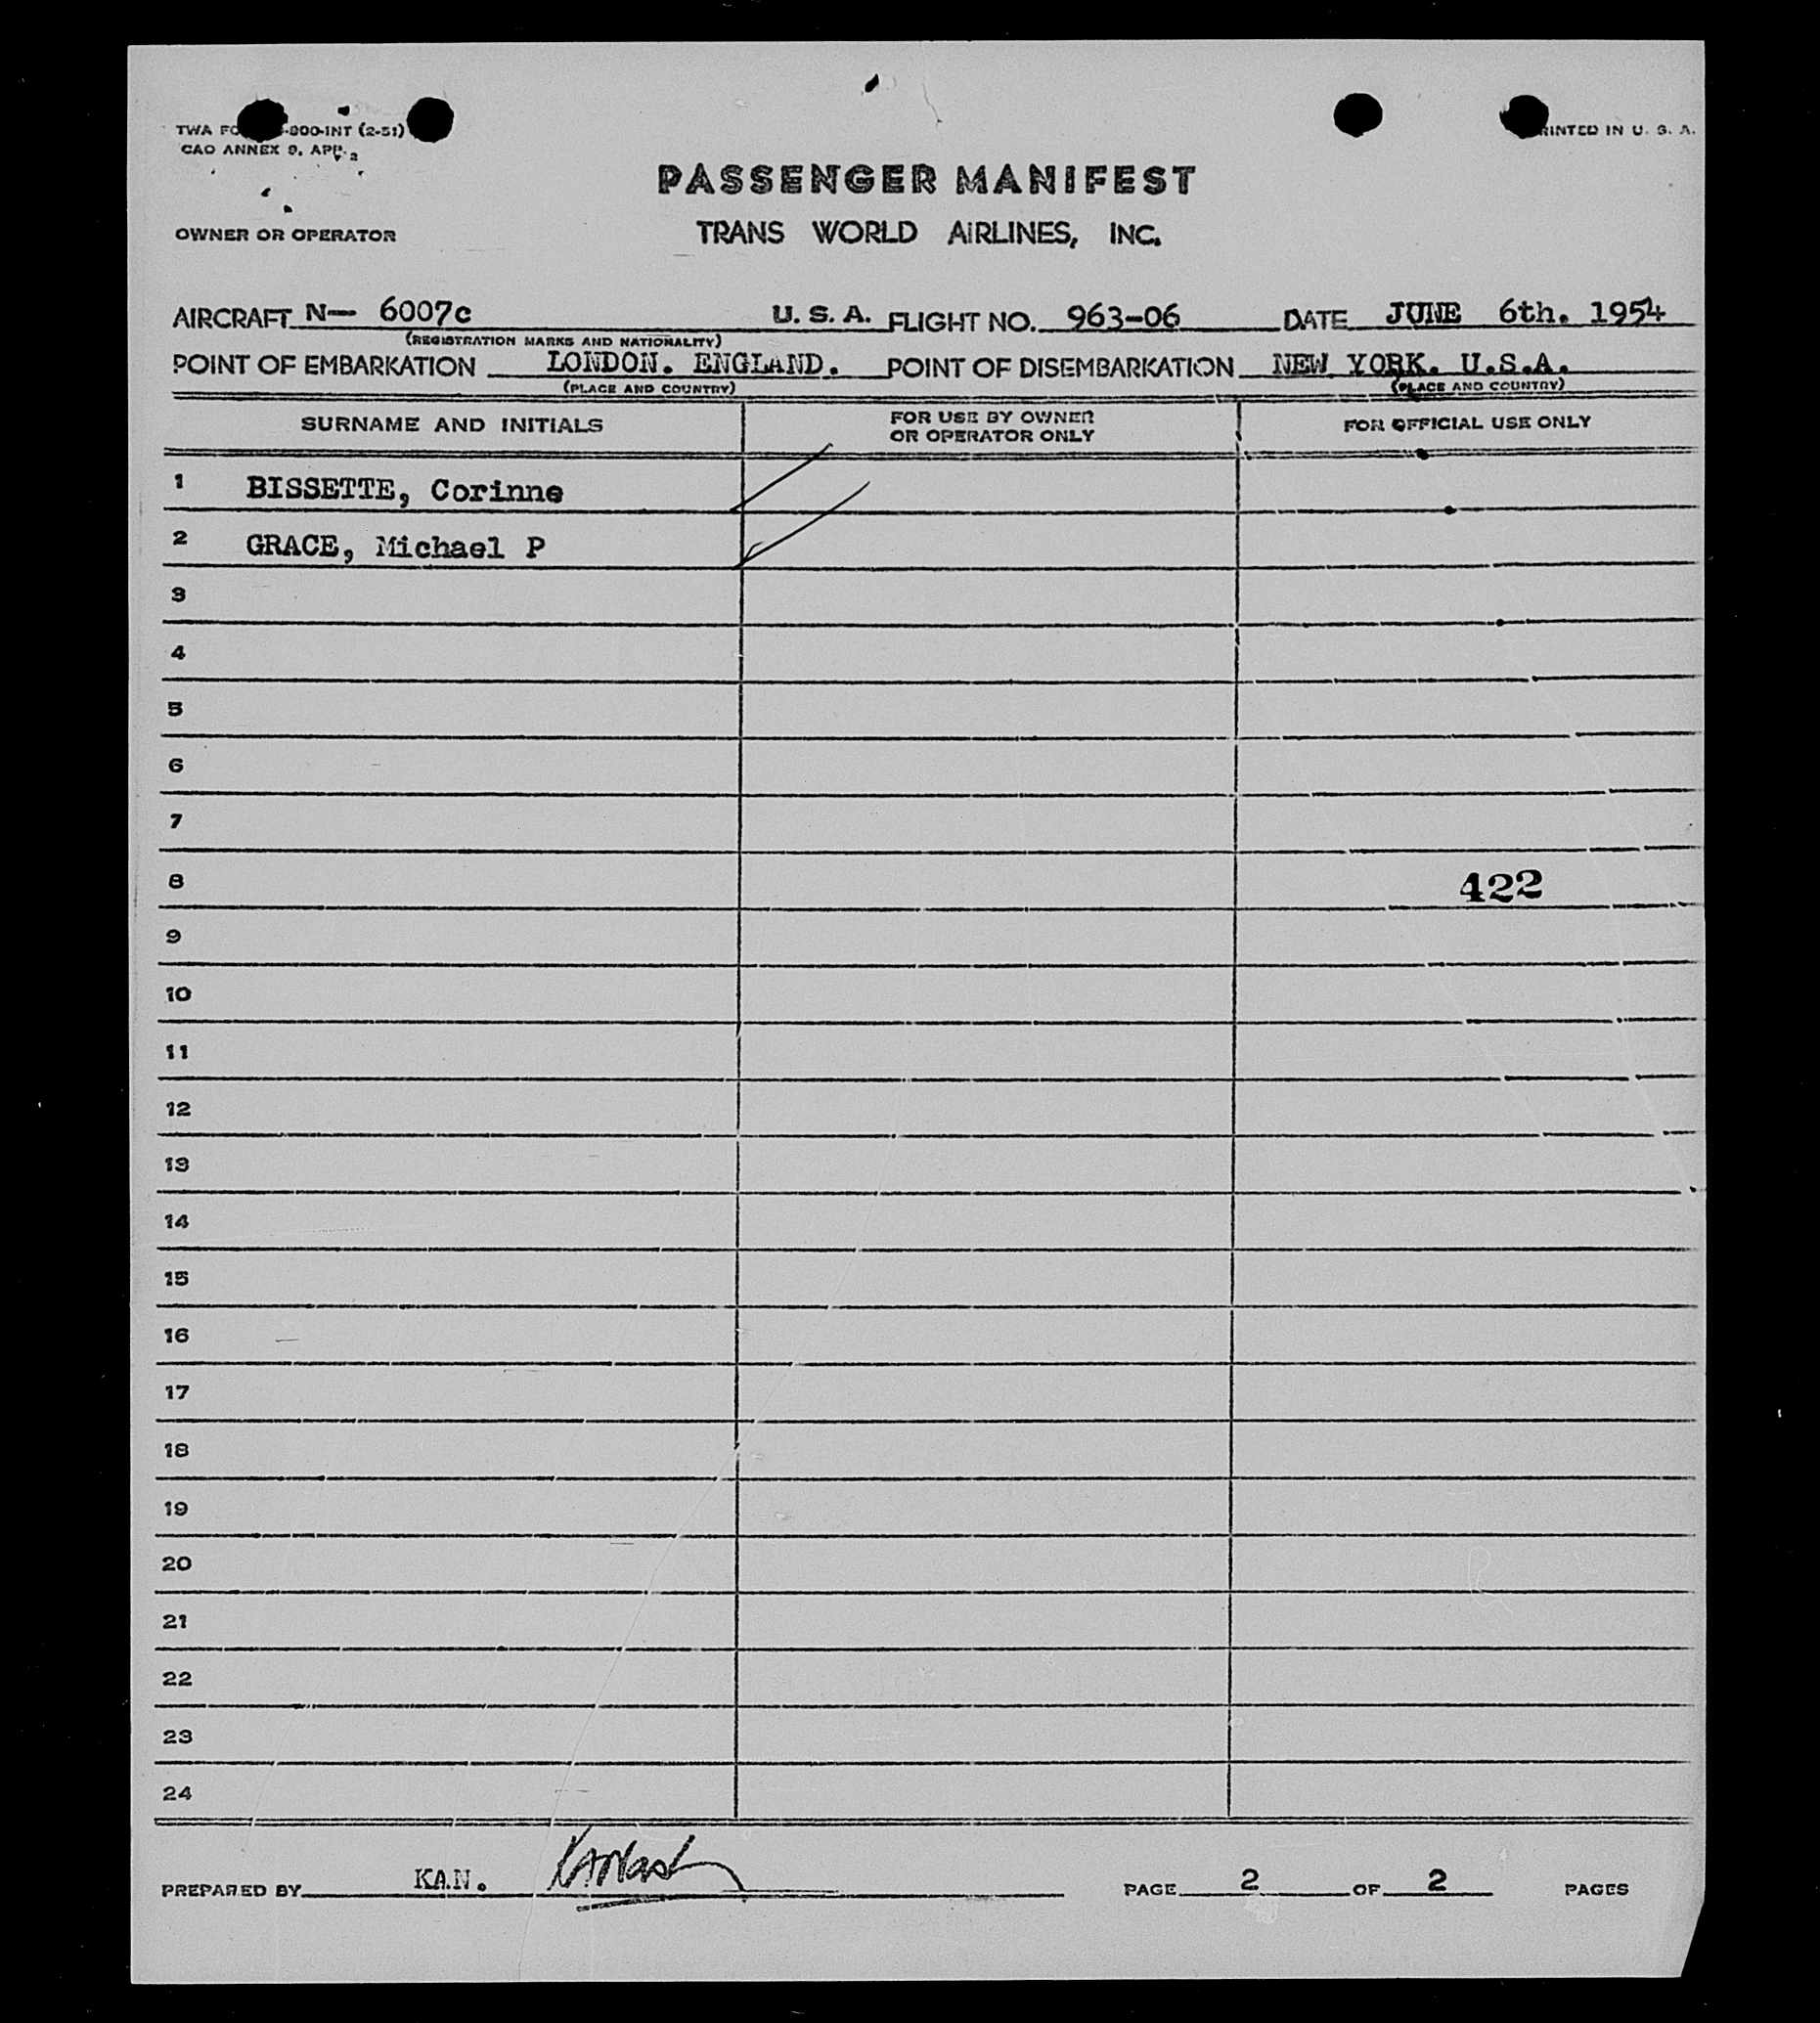 TWA FO -800-INT (2-51)
CAO ANNEX 9, APP. 2
RINTED IN U. S. A.
PASSENGER MANIFEST
OWNER OR OPERATOR
TRANS WORLD AIRLINES, INC.
AIRCRAFT N— 6007c U. S. A. FLIGHT NO. 963-06 DATE JUNE 6th. 1954
(REGISTRATION MARKS AND NATIONALITY)
POINT OF EMBARKATION LONDON. ENGLAND. POINT OF DISEMBARKATION NEW YORK. U.S.A.
(PLACE AND COUNTRY) (PLACE AND COUNTRY)
SURNAME AND INITIALS
FOR USE BY OWNER
OR OPERATOR ONLY
FOR OFFICIAL USE ONLY
1 BISSETTE, Corinne
2 GRACE, Michael P
3
4
5
6
7
8 422
9
10
11
12
13
14
15
16
17
18
19
20
21
22
23
24
PREPARED BY KAN. PAGE 2 OF 2 PAGES